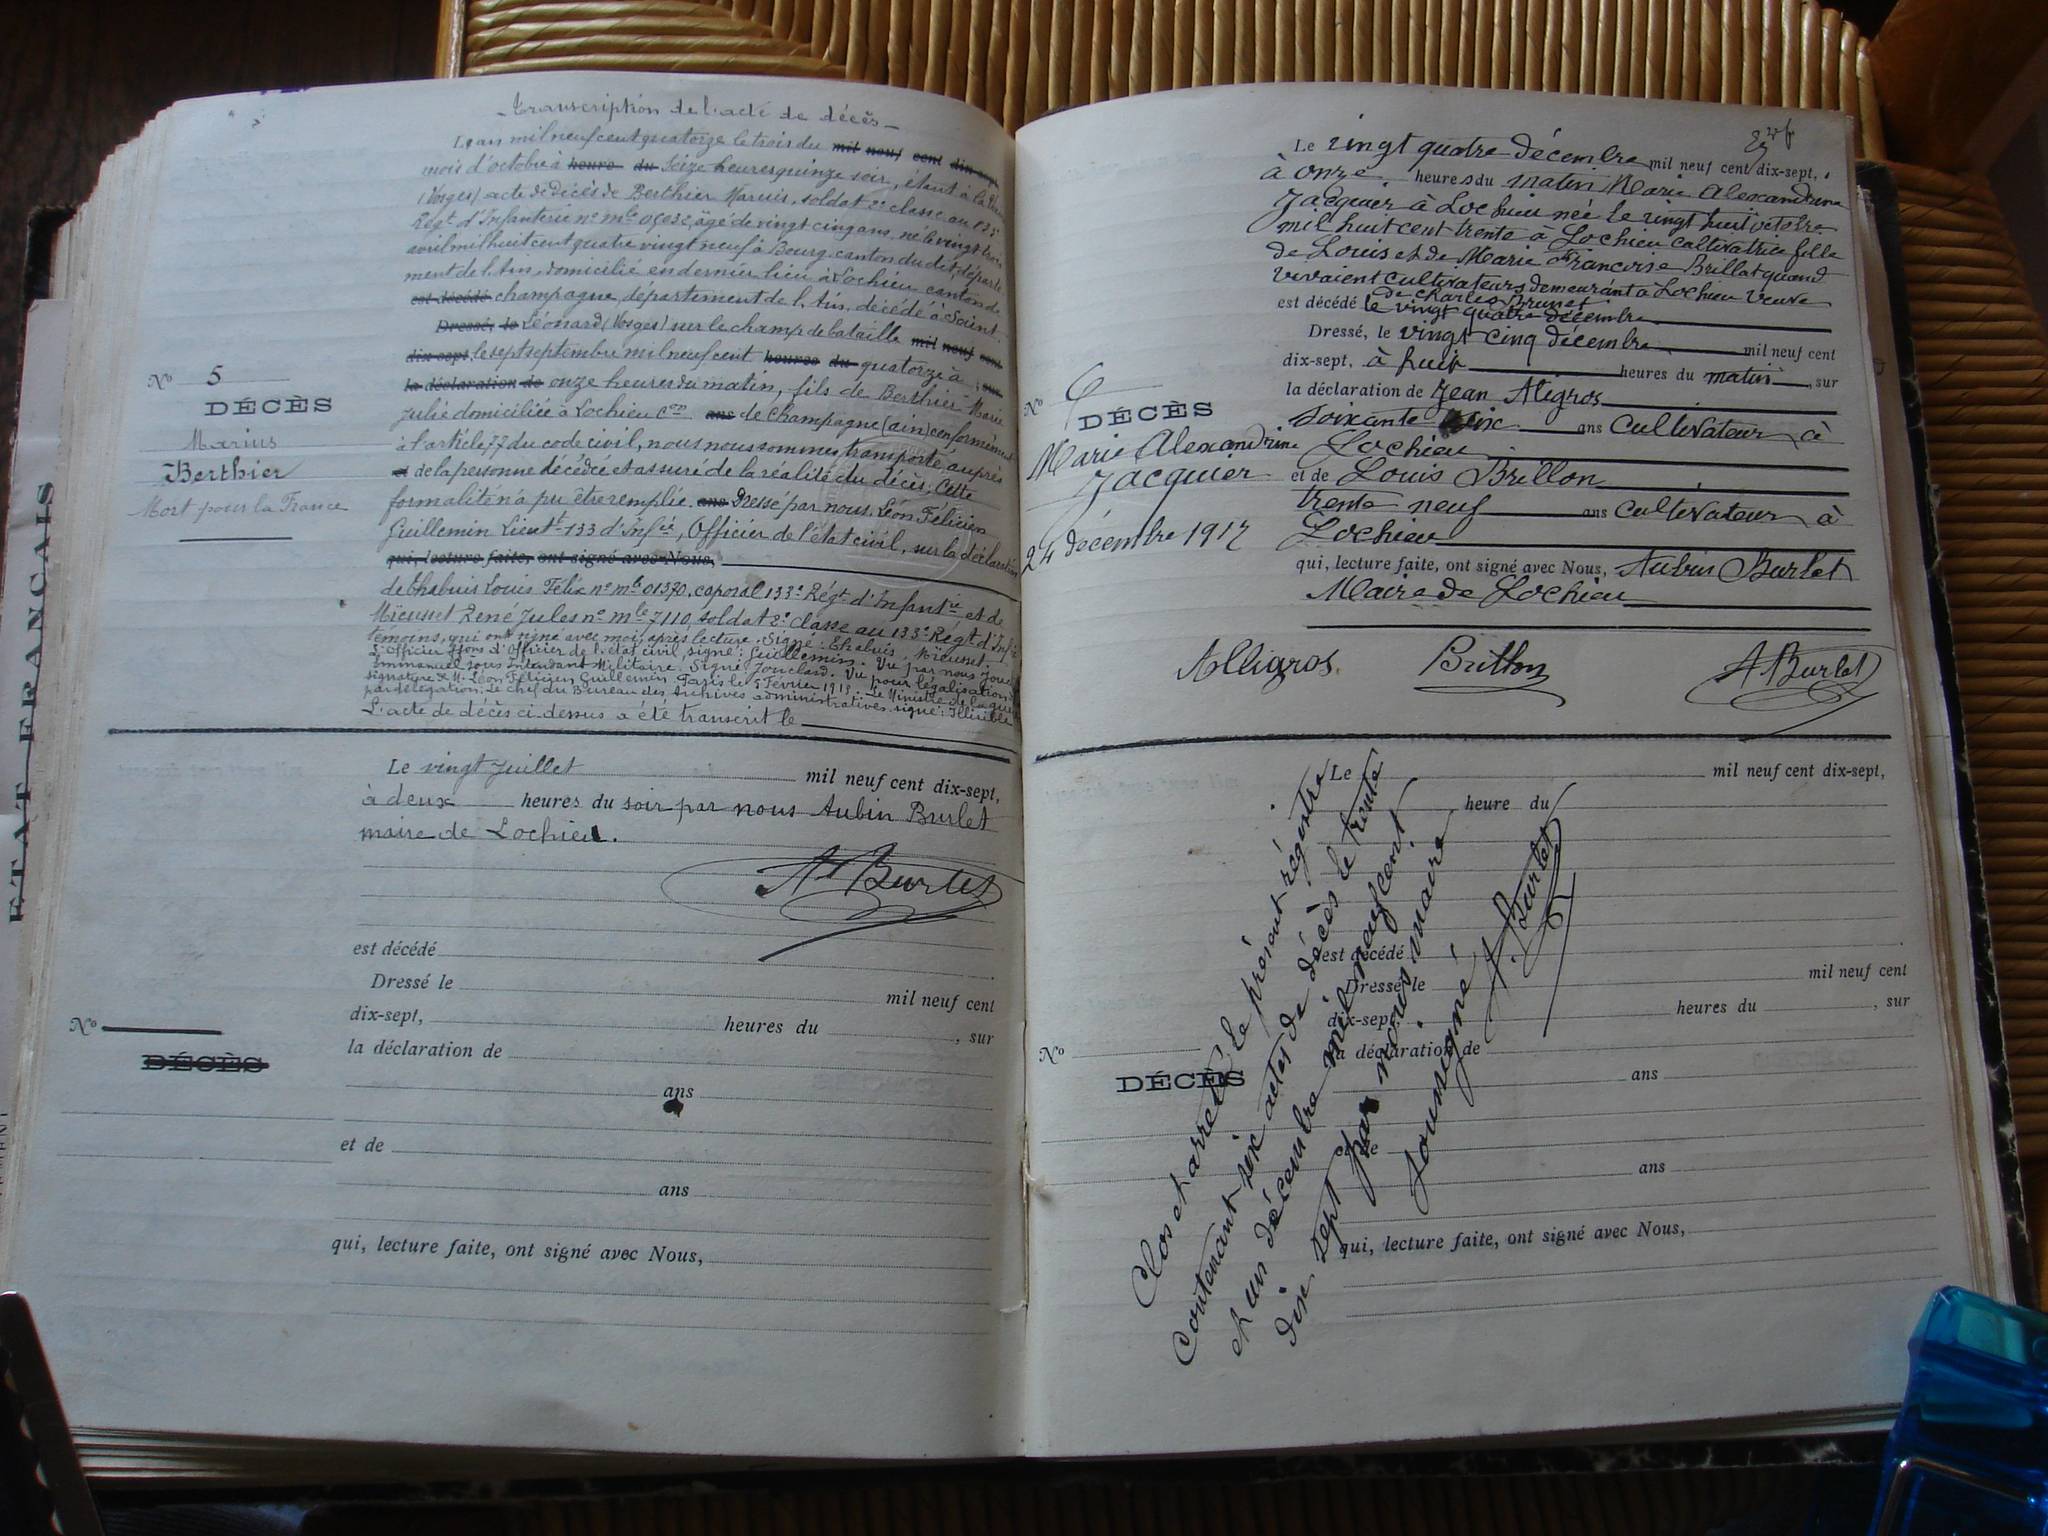 Transcription de l'acte de décès
L'an mil neuf cent quatorze le trois du mil neuf cent dix-sept,
mois d'octobre à heure du Seize heures quinze soir, étant à la
(Vosges) acte de Décès de Berthier Marius, soldat 2e classe au 133
Régt d'Infanterie no mle 05032, âgé de vingt cinq ans, né le vingt trois
avril mil huit cent quatre vingt neuf à Bourg, canton du dit, départe
ment de l'Ain, domicilié en dernier lieu à Lochieu canton de
est décédé champagne, département de l'Ain, décédé à Saint
Dressé, le Léonard (Vosges) sur le champ de bataille mil neuf cent
dix-sept, le sept septembre mil neuf cent heures du quatorze à , sur
la déclaration de onze heures du matin, fils de Berthier Marie
Julie domiciliée à Lochieu Con ans de Champagne (ain) conformément
à l'article 77 du code civil, nous nous sommes transporté auprès
de la personne décédée et assuré de la réalité du décès. Cette
formalité n'a pu être remplie. ans Dressé par nous Léon Félicien
Guillemin Lieutt 133 d'Infie, Officier de l'état civil, sur la déclaration
qui, lecture faite, ont signé avec Nous,
de Chabuis Louis Félix no mle 01370, caporal 133e Régt d'Infantie et de
Mieusset René Jules no mle 7110, soldat 2e classe au 133e Régt d'Inf
témoins, qui ont signé avec moi après lecture. Signé: Chabuis, Mieusset.
L'Officier ffons d'Officier de l'état civil signé: Guillemin. Vu par nous
Emmanuel sous Intendant Militaire. Signé Jouclard. Vu pour légalisation
signature de M. Léon Félicien Guillemin Paris le 5 Février 1915. Le Ministre de la guerre
par délégation: Le chef du Bureau des Archives administratives signé: Illisible
L'acte de décès ci-dessus a été transcrit le
No 5
DÉCÈS
Marius
Berthier
Mort pour la France
Le vingt Juillet mil neuf cent dix-sept,
à deux heures du soir par nous Aubin Burlet
maire de Lochieu.
A. Burlet
est décédé
Dressé le mil neuf cent
dix-sept, heures du , sur
No
DÉCÈS
la déclaration de
ans
et de
ans
qui, lecture faite, ont signé avec Nous,
ETAT FRANÇAIS
Le vingt quatre décembre mil neuf cent dix-sept,
à onze heures du matin Marie Alexandrine
Jacquier à Lochieu née le vingt huit octobre
mil huit cent trente à Lochieu cultivatrice fille
de Louis et de Marie Françoise Brillat quand
vivaient cultivateurs demeurant à Lochieu Veuve
de Charles Brunet
est décédé le vingt quatre décembre
Dressé, le vingt cinq décembre mil neuf cent
dix-sept, à huit heures du matin, sur
la déclaration de Jean Aligros
soixante six ans cultivateur à
Lochieu
et de Louis Brillon
trente neuf ans cultivateur à
Lochieu
qui, lecture faite, ont signé avec Nous, Aubin Burlet
Maire de Lochieu
No 6
DÉCÈS
Marie Alexandrine
Jacquier
24 décembre 1917
Alligros Brillon A Burlet
Le mil neuf cent dix-sept,
heure du
est décédé
Dressé le mil neuf cent
dix-sept, heures du , sur
No
DÉCÈS
la déclaration de
ans
et de
ans
qui, lecture faite, ont signé avec Nous,
Clos et arrêté le présent régistre
Contenant six actes de décès le trente
et un décembre mil neuf cent
dix sept par nous maire
soussigné
A. Burlet